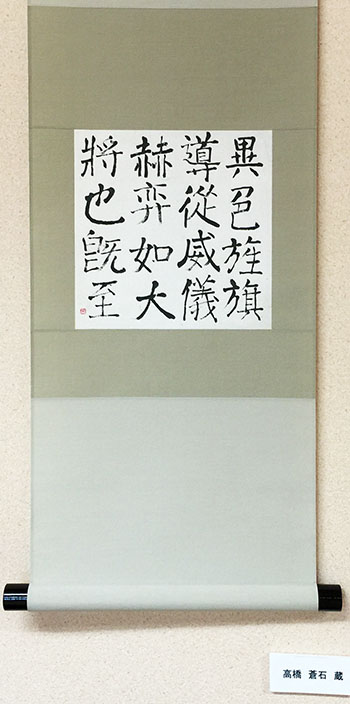 異色旌旗
導從威儀
赫弈如大
將也既至
高橋 蒼石 蔵